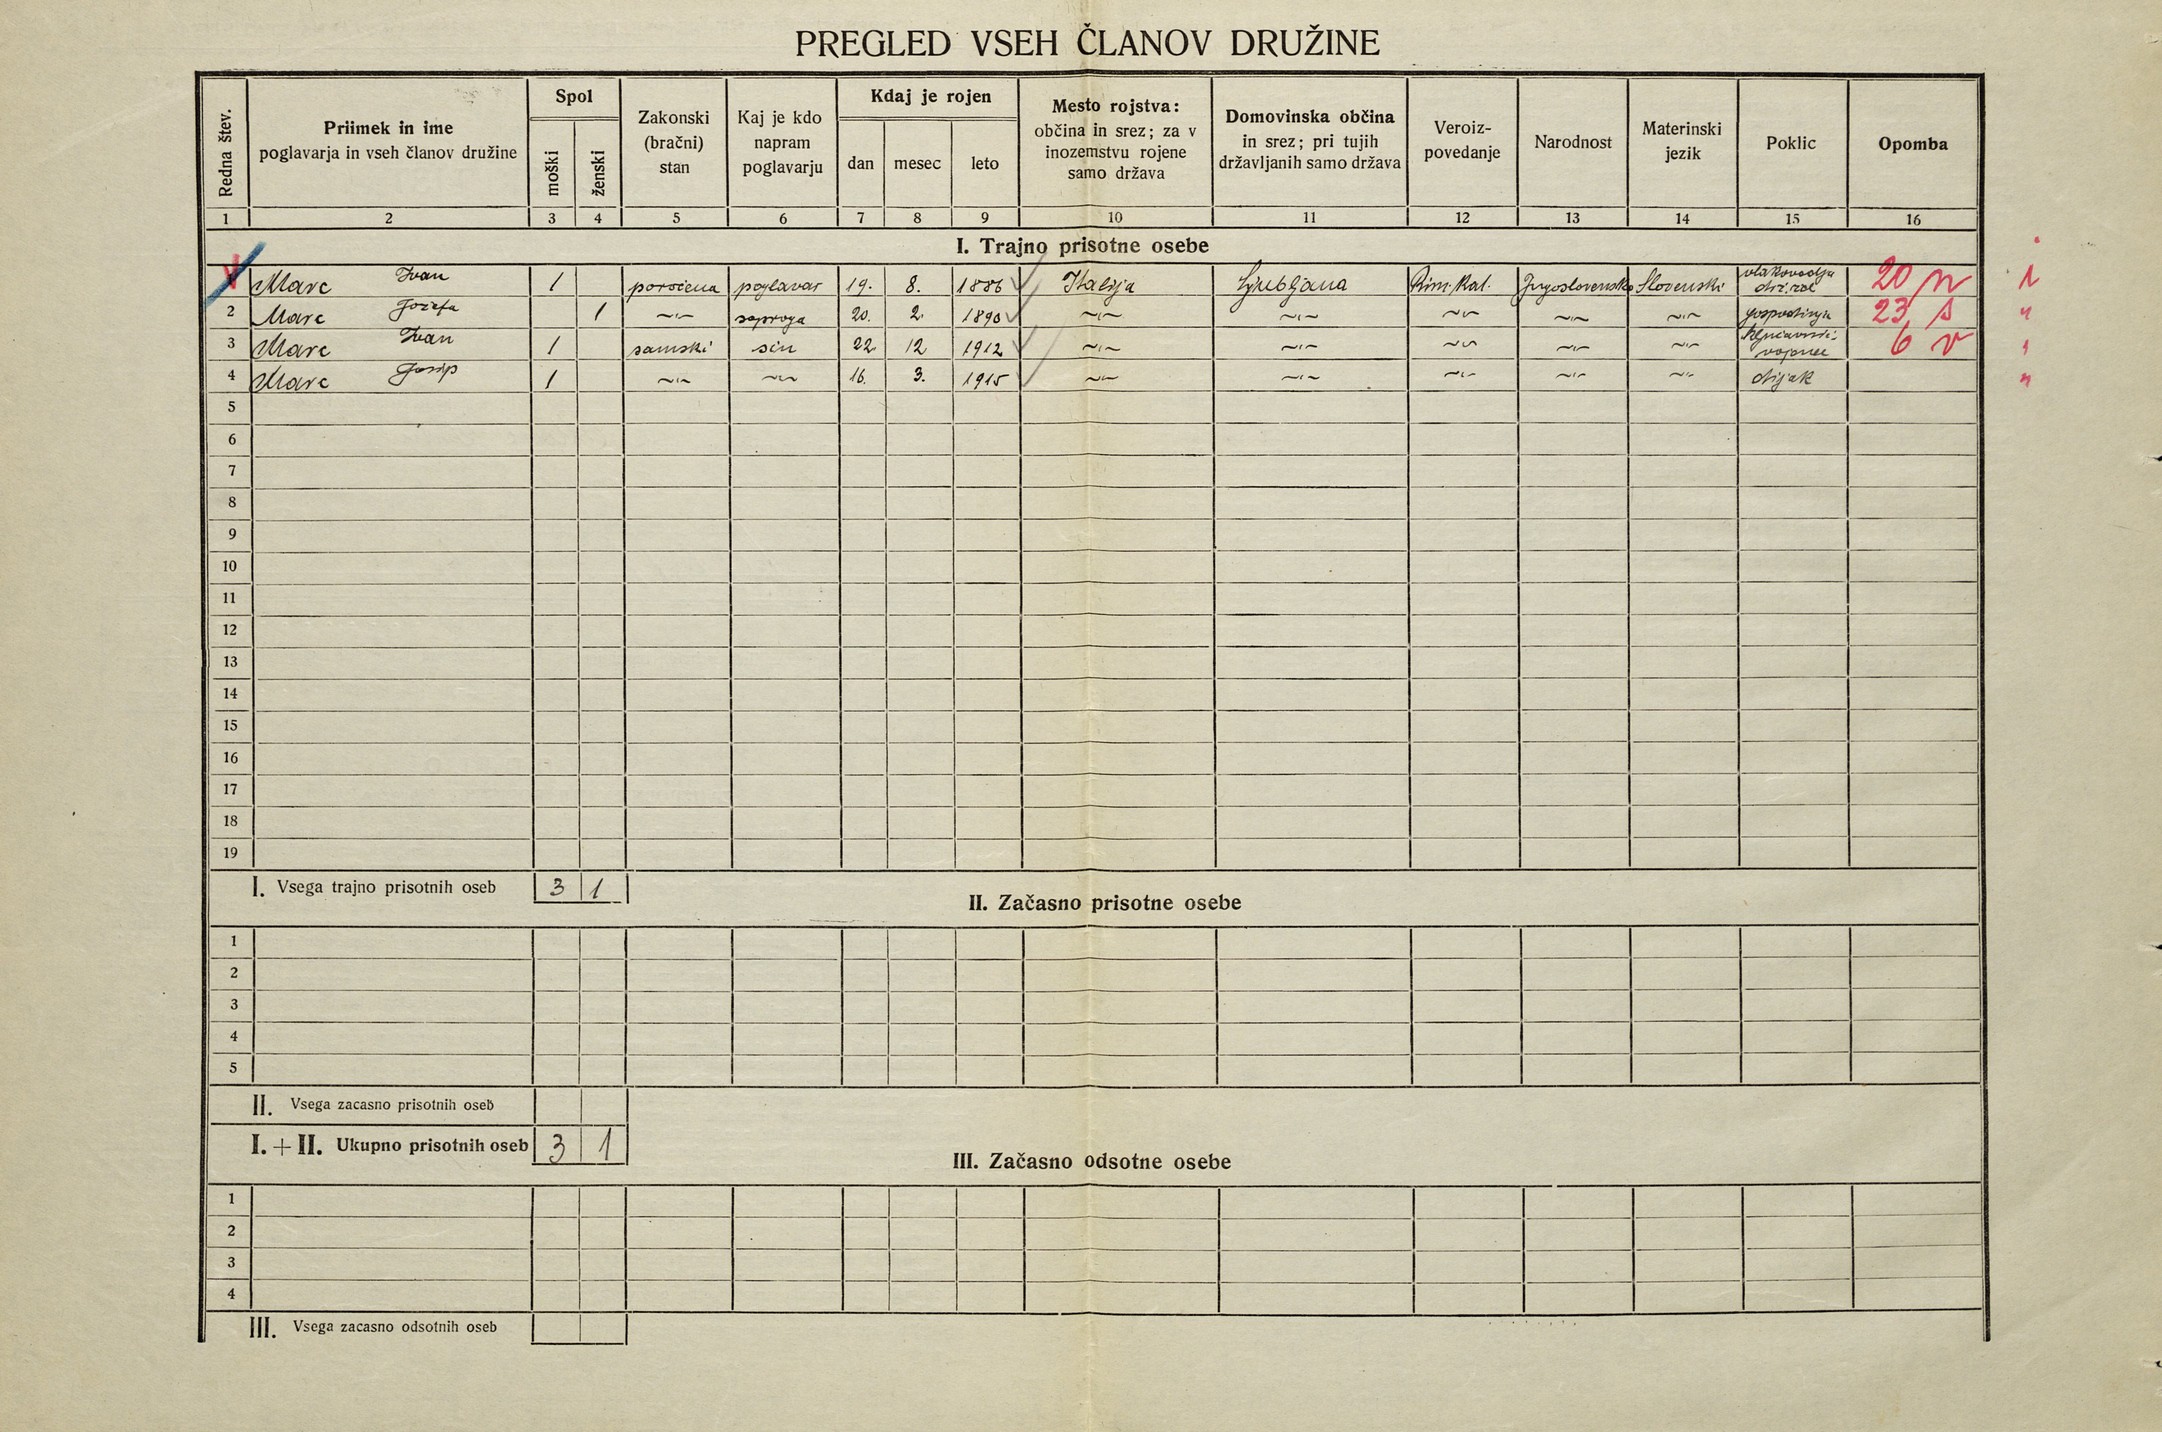 PREGLED VSEH ČLANOV DRUŽINE
Redna štev.
Priimek in ime
poglavarja in vseh članov družine
Spol
moški
ženski
Zakonski
(bračni)
stan
Kaj je kdo
napram
poglavarju
Kdaj je rojen
dan mesec leto
Mesto rojstva:
občina in srez; za v
inozemstvu rojene
samo država
Domovinska občina
in srez; pri tujih
državljanih samo država
Veroiz-
povedanje
Narodnost
Materinski
jezik
Poklic
Opomba
1 2 3 4 5 6 7 8 9 10 11 12 13 14 15 16
I. Trajno prisotne osebe
Marc Ivan 1 poročena poglavar 19. 8. 1886 Italija Ljubljana Rim. Kat. Jugoslovensko Slovenski vlakovodja drž. žel 20 n
2 Marc Jozefa 1 ~"~ soproga 20. 2. 1890 ~"~ ~"~ ~"~ ~"~ ~"~ gospodinja 23 s
3 Marc Ivan 1 samski sin 22 12 1912 ~"~ ~"~ ~"~ ~"~ ~"~ 6 v
4 Marc Josip 1 ~"~ ~"~ 16. 3. 1915 ~"~ ~"~ ~"~ ~"~ ~"~ dijak
5
6
7
8
9
10
11
12
13
14
15
16
17
18
19
I. Vsega trajno prisotnih oseb 3 1
II. Začasno prisotne osebe
1
2
3
4
5
II. Vsega zacasno prisotnih oseb
I. + II. Ukupno prisotnih oseb 3 1
III. Začasno odsotne osebe
1
2
3
4
III. Vsega zacasno odsotnih oseb